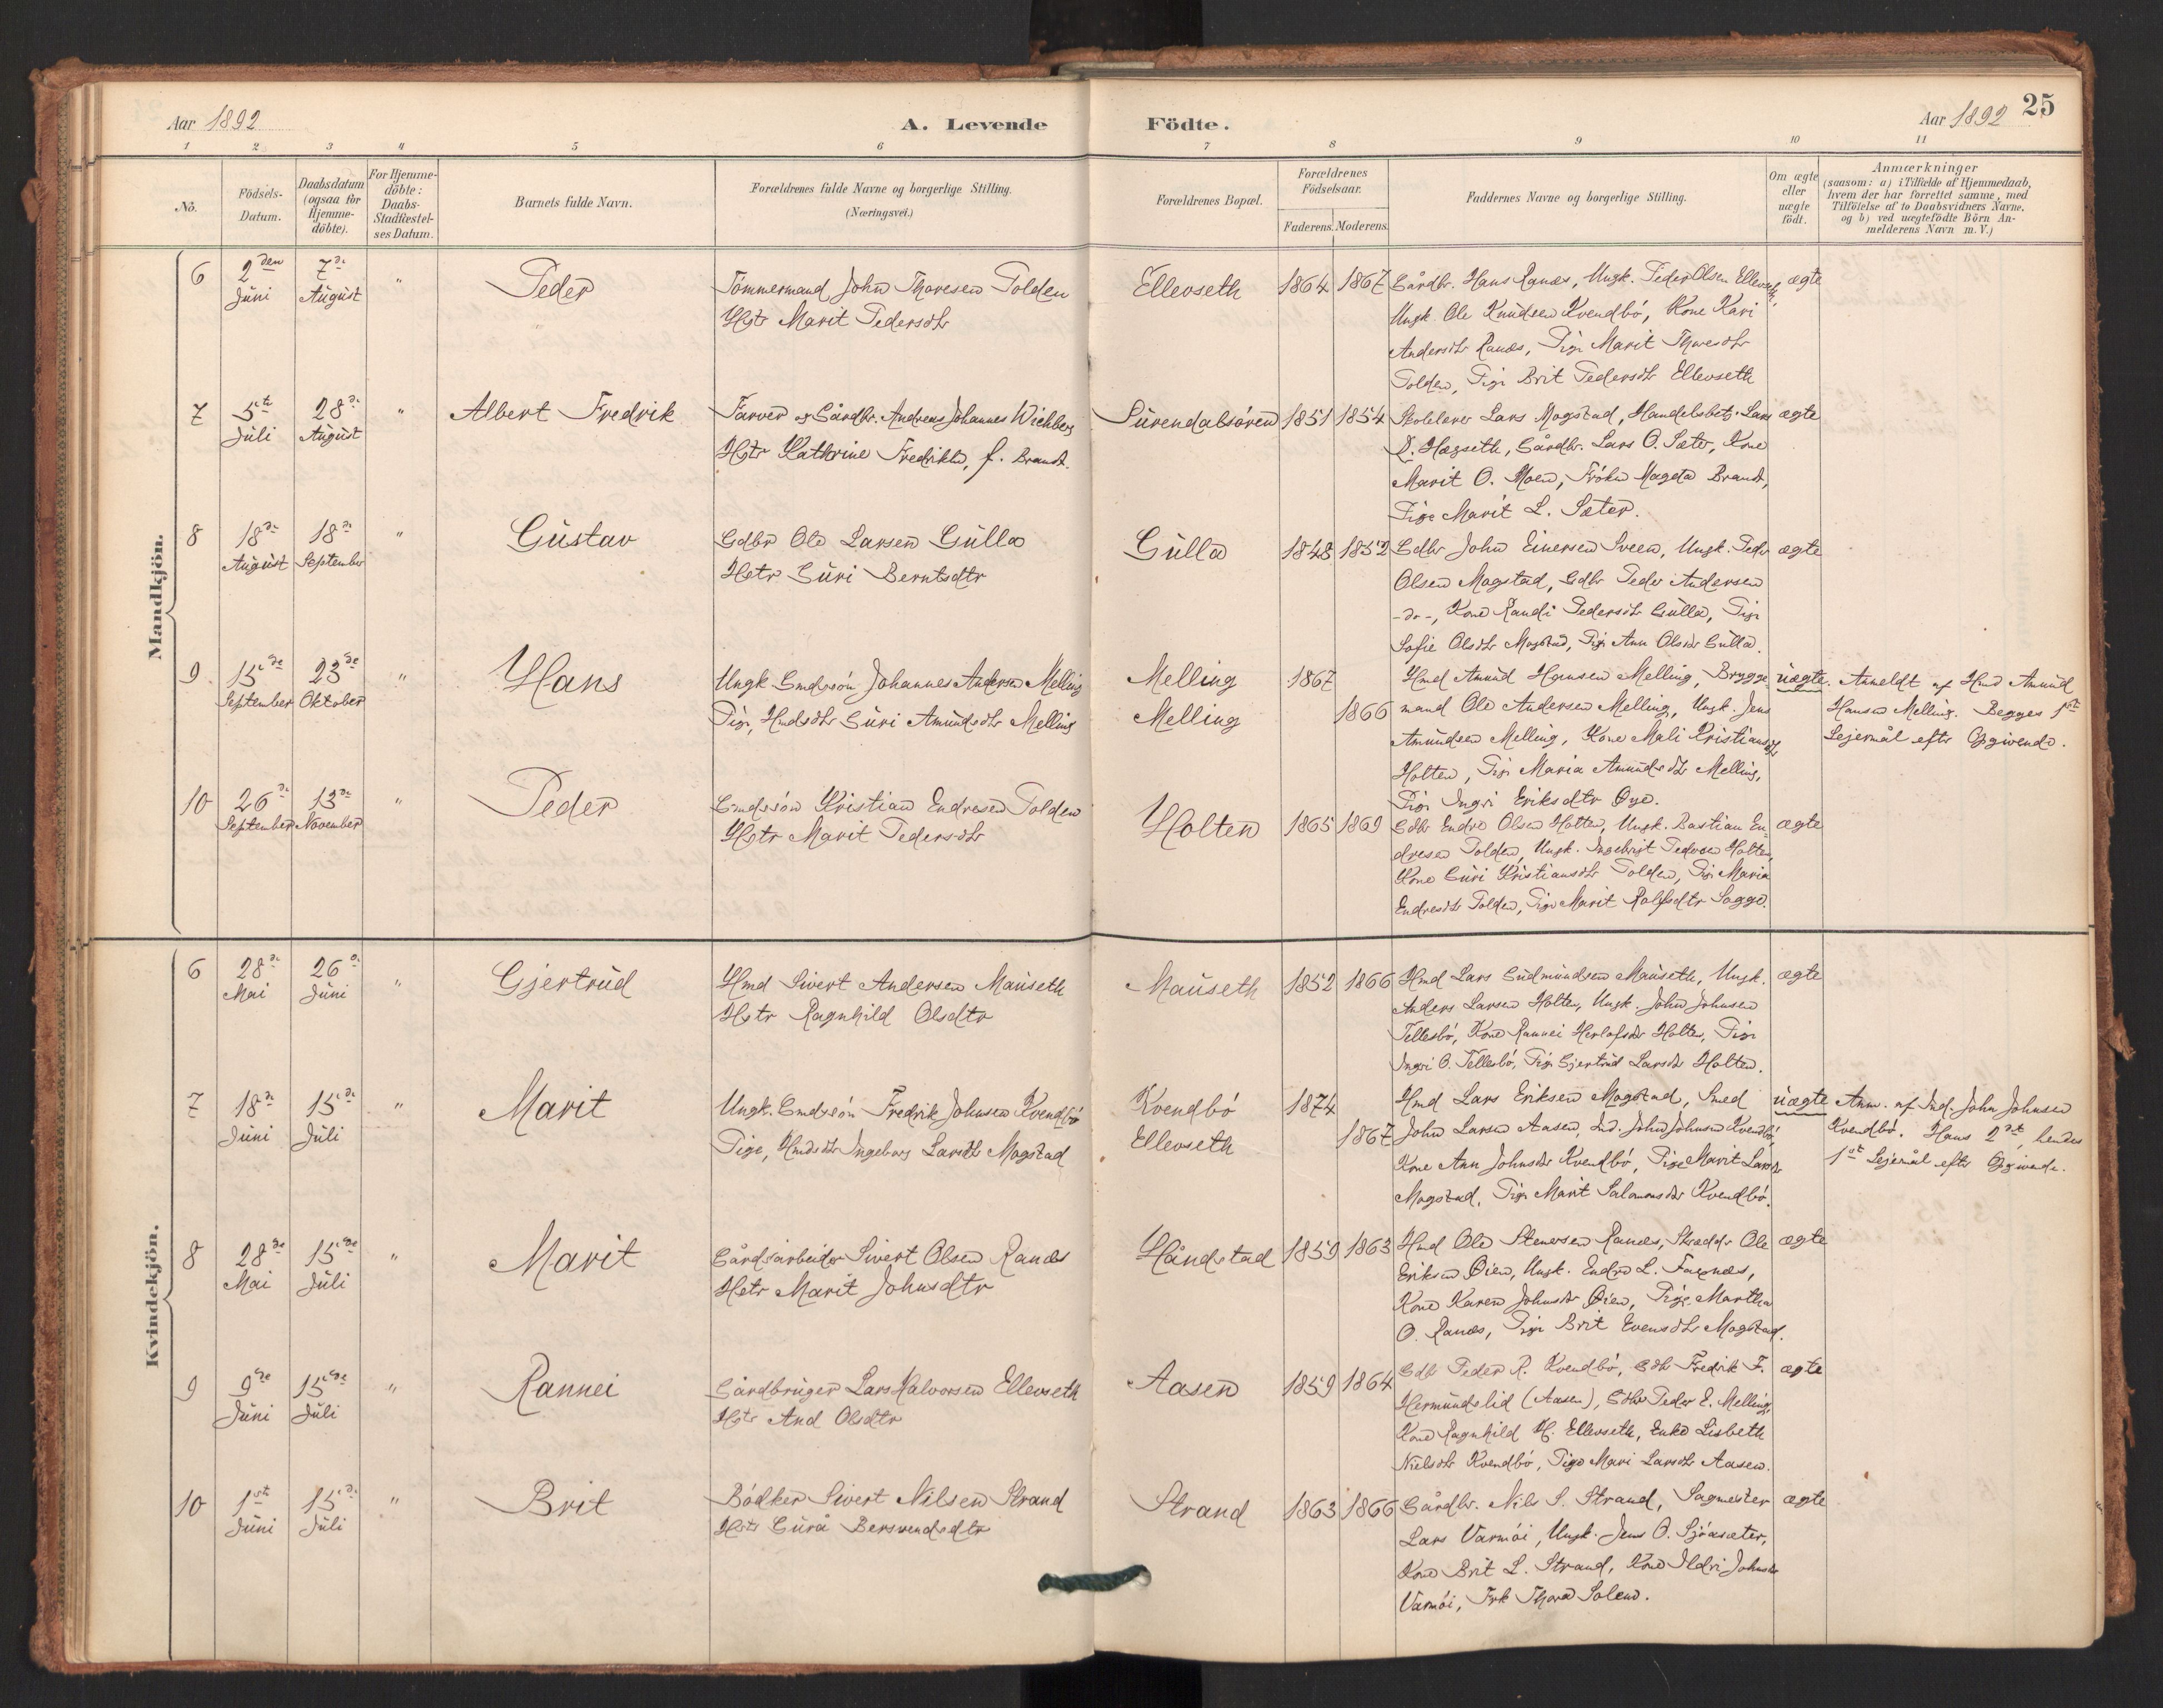 Aar 1892
A. Levende Födte.
Aar 1892
25
1 2 3 4 5 6 7 8 9 10 11
No.
Födsels-Datum.
Daabsdatum (ogsaa for Hjemme-döbte).
For Hjemme-döbte: Daabs-Stadfæstel-ses Datum.
Barnets fulde Navn.
Forældrenes fulde Navne og borgerlige Stilling. (Næringsvei.)
Forældrenes Bopæl.
Forældrenes Födselsaar.
Faderens. Moderens.
Faddernes Navne og borgerlige Stilling.
Om ægte eller uægte födt.
Anmærkninger
(saasom: a) i Tilfælde af Hjemmedaab,
hvem der har forrettet samme, med
Tilföielse af to Daabsvidners Navne,
og b) ved uægtefödte Börn An-
melderens Navn m. V.)
Mandkjön.
6 2den Juni 7de August " Peder
Tömmermand John Thoresen Tolden
Hstr Marit Pedersdtr
Ellevseth 1864 1867
Gårdbr. Hans Ranæs, Ungk. Peder Olsen Ellevseth,
Ungk. Ole Knudsen Kvendbö, Kone Kari
Andersdtr Ranæs, Pige Marit Thoresdtr
Tolden, Pige Brit Pedersdtr Ellevseth
ægte
7 5te Juli 28de August " Albert Fredrik
Farver og Gårdbr. Andreas Johannes Wichberg
Hstr Kathrine Fredrikke, f. Brandt.
Surendalsören 1851 1854
Skolelærer Lars Mogstad, Handelsbetj. Lars
D. Hægseth, Gårdbr. Lars O. Sæter, Kone
Marit O. Moen, Frökn Magda Brandt,
Pige Marit L. Sæter.
ægte
8 18de August 18de September " Gustav
Gdbr Ole Larsen Gulla
Hstr Guri Berntsdtr
Gulla 1848 1852
Gdbr John Einersen Sveen, Ungk. Peder
Olsen Mogstad, Gdbr Peder Andersen
-do-, Kone Randi Pedersdtr Gulla, Pige
Sofie Olsdtr Mogstad, Pige Ann Olsdtr Gulla.
ægte
9 15de September 23de Oktober " Hans
Ungk. Gmdssön Johannes Andersen Melling
Pige, Hmdsdtr Guri Amundsdtr Melling
Melling 1867
Melling 1866
Hmd Amund Hansen Melling, Brygge-
mand Ole Andersen Melling, Ungk. Jens
Amundsen Melling, Kone Mali Kristiansdtr
Holten, Pige Maria Amundsdtr Melling,
Pige Ingri Eriksdtr Öye.
uægte.
Anmeldt af Hmd Amund
Hansen Melling. Begges 1ste
Lejermål efter Opgivende.
10 26de September 13de November " Peder
Gmdssön Kristian Endresen Tolden
Hstr Marit Pedersdtr
Holten 1865 1869
Gdbr Endre Olsen Holten, Ungk. Bastian En-
dresen Tolden, Ungk. Ingebrigt Pedersen Holten,
Kone Guri Kristiansdtr Tolden, Pige Maria
Endresdtr Tolden, Pige Marit Rolfsdtr Sogge.
ægte
Kvindekjön.
6 28de Mai 26de Juni " Gjertrud
Hmd Sivert Andersen Mauseth
Hstr Ragnhild Olsdtr
Mauseth 1852 1866
Hmd Lars Gudmundsen Mauseth, Ungk.
Anders Larsen Holten, Ungk. John Johnsen
Tellesbö, Kone Rannei Herlofsdtr Holten, Pige
Ingri O. Tellesbö, Pige Gjertrud Larsdtr Holten.
ægte
7 18de Juni 15de Juli " Marit
Ungk. Gmdssön Fredrik Johnsen Kvendbö
Pige, Hmdsdtr Ingeborg Larsdtr Mogstad
Kvendbö 1874
Ellevseth 1867
Hmd Lars Eriksen Mogstad, Smed
John Larsen Aasen, Ind. John Johnsen Kvendbö,
Kone Ann Johnsdtr Kvendbö, Pige Marit Larsdtr
Mogstad, Pige Marit Salamonsdtr Kvendbö.
uægte
Anm. af Ind. John Johnsen
Kvendbö. Hans 2det, hendes
1ste Lejermål efter Opgivende.
8 28de Mai 15de Juli " Marit
Gårdsarbeider Sivert Olsen Ranæs
Hstr Marit Johnsdtr
Håndstad 1859 1863
Hmd Ole Stenersen Ranæs, Skrædder Ole
Eriksen Öien, Ungk. Endre L.
Kone Karen Johnsdtr Öien, Pige Martha
O. Ranæs, Pige Brit Evensdtr Mogstad.
ægte
9 9de Juni 15de Juli " Rannei
Gårdbruger Lars Halvorsen Ellevseth
Hstr And Olsdtr
Aasen 1859 1864
Gdbr Peder R. Kvendbö, Gdbr Fredrik F.
Hermundslid (Aasen), Gdbr Peder E. Melling,
Kone Ragnhild H. Ellevseth, Enke Lisbeth
Nielsdtr Kvendbö, Pige Mari Larsdtr Aasen.
ægte
10 1ste Juni 15de Juli " Brit
Bödker Sivert Nilsen Strand
Hstr Gurå Bersvendsdtr
Strand 1863 1866
Gårdbr. Nils S. Strand, Sagmester
Lars Varmöi, Ungk. Jens O. Sjöasæter,
Kone Brit L. Strand, Kone Ildri Johnsdtr
Varmöi, Frk Thora Solem.
ægte